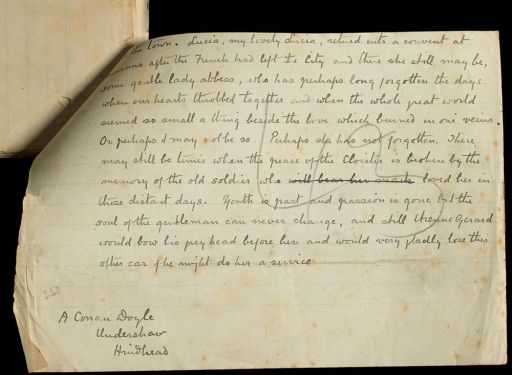 town. Lucia, my lovely Lucia, retired into a convent at
after the French had left the City and there she still may be,
some gentle lady abbess, who has perhaps long forgotten the days
when our hearts throbbed together and when the whole great world
seemed so small a thing beside the love which burned in our veins.
Or perhaps it may not be so. Perhaps she has not forgotten. There
may still be times when the peace of the Cloister is broken by the
memory of the old soldier who will bear her mark loved her in
those distant days. Youth is past and passion is gone but the
soul of the gentleman can never change, and still Etienne Gerard
would bow his grey head before her and would very gladly lose this
other ear if he might do her a service
A Conan Doyle
Undershaw
Hindhead